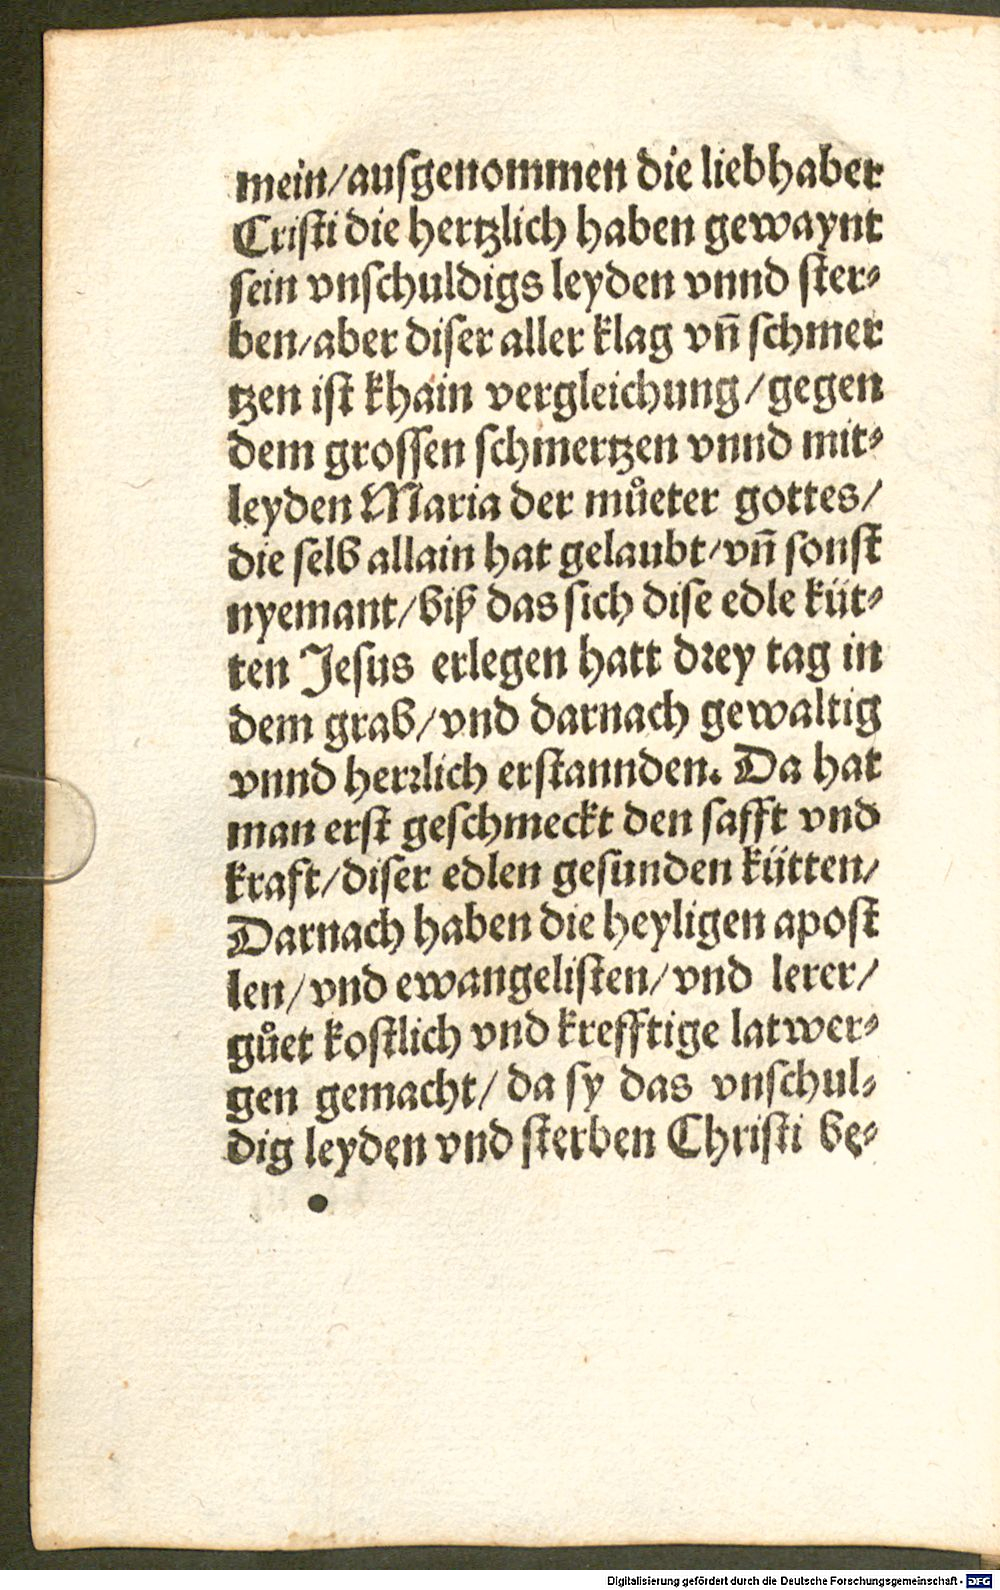 mein/ausgenommen die liebhaber
Cristi die hertzlich haben gewaynt
sein vnschuldigs leyden vnnd ster⸗
ben/aber diser aller klag vn̄ schmer
tzen ist khain vergleichung/gegen
dem grossen schmertzen vnnd mit⸗
leyden Maria der můeter gottes/
die selb allain hat gelaubt/vn̄ sonst
nyemant/biß das sich dise edle küt⸗
ten Jesus erlegen hatt drey tag in
dem grab/vnd darnach gewaltig
vnnd herrlich erstannden. Da hat
man erst geschmeckt den safft vnd
kraft/diser edlen gesunden kütten/
Darnach haben die heyligen apost
len/vnd ewangelisten/vnd lerer/
gůet kostlich vnd krefftige latwer⸗
gen gemacht/da sy das vnschul⸗
dig leyden vnd sterben Christi be⸗
Digitalisierung gefördert durch die Deutsche Forschungsgemeinschaft - DFG